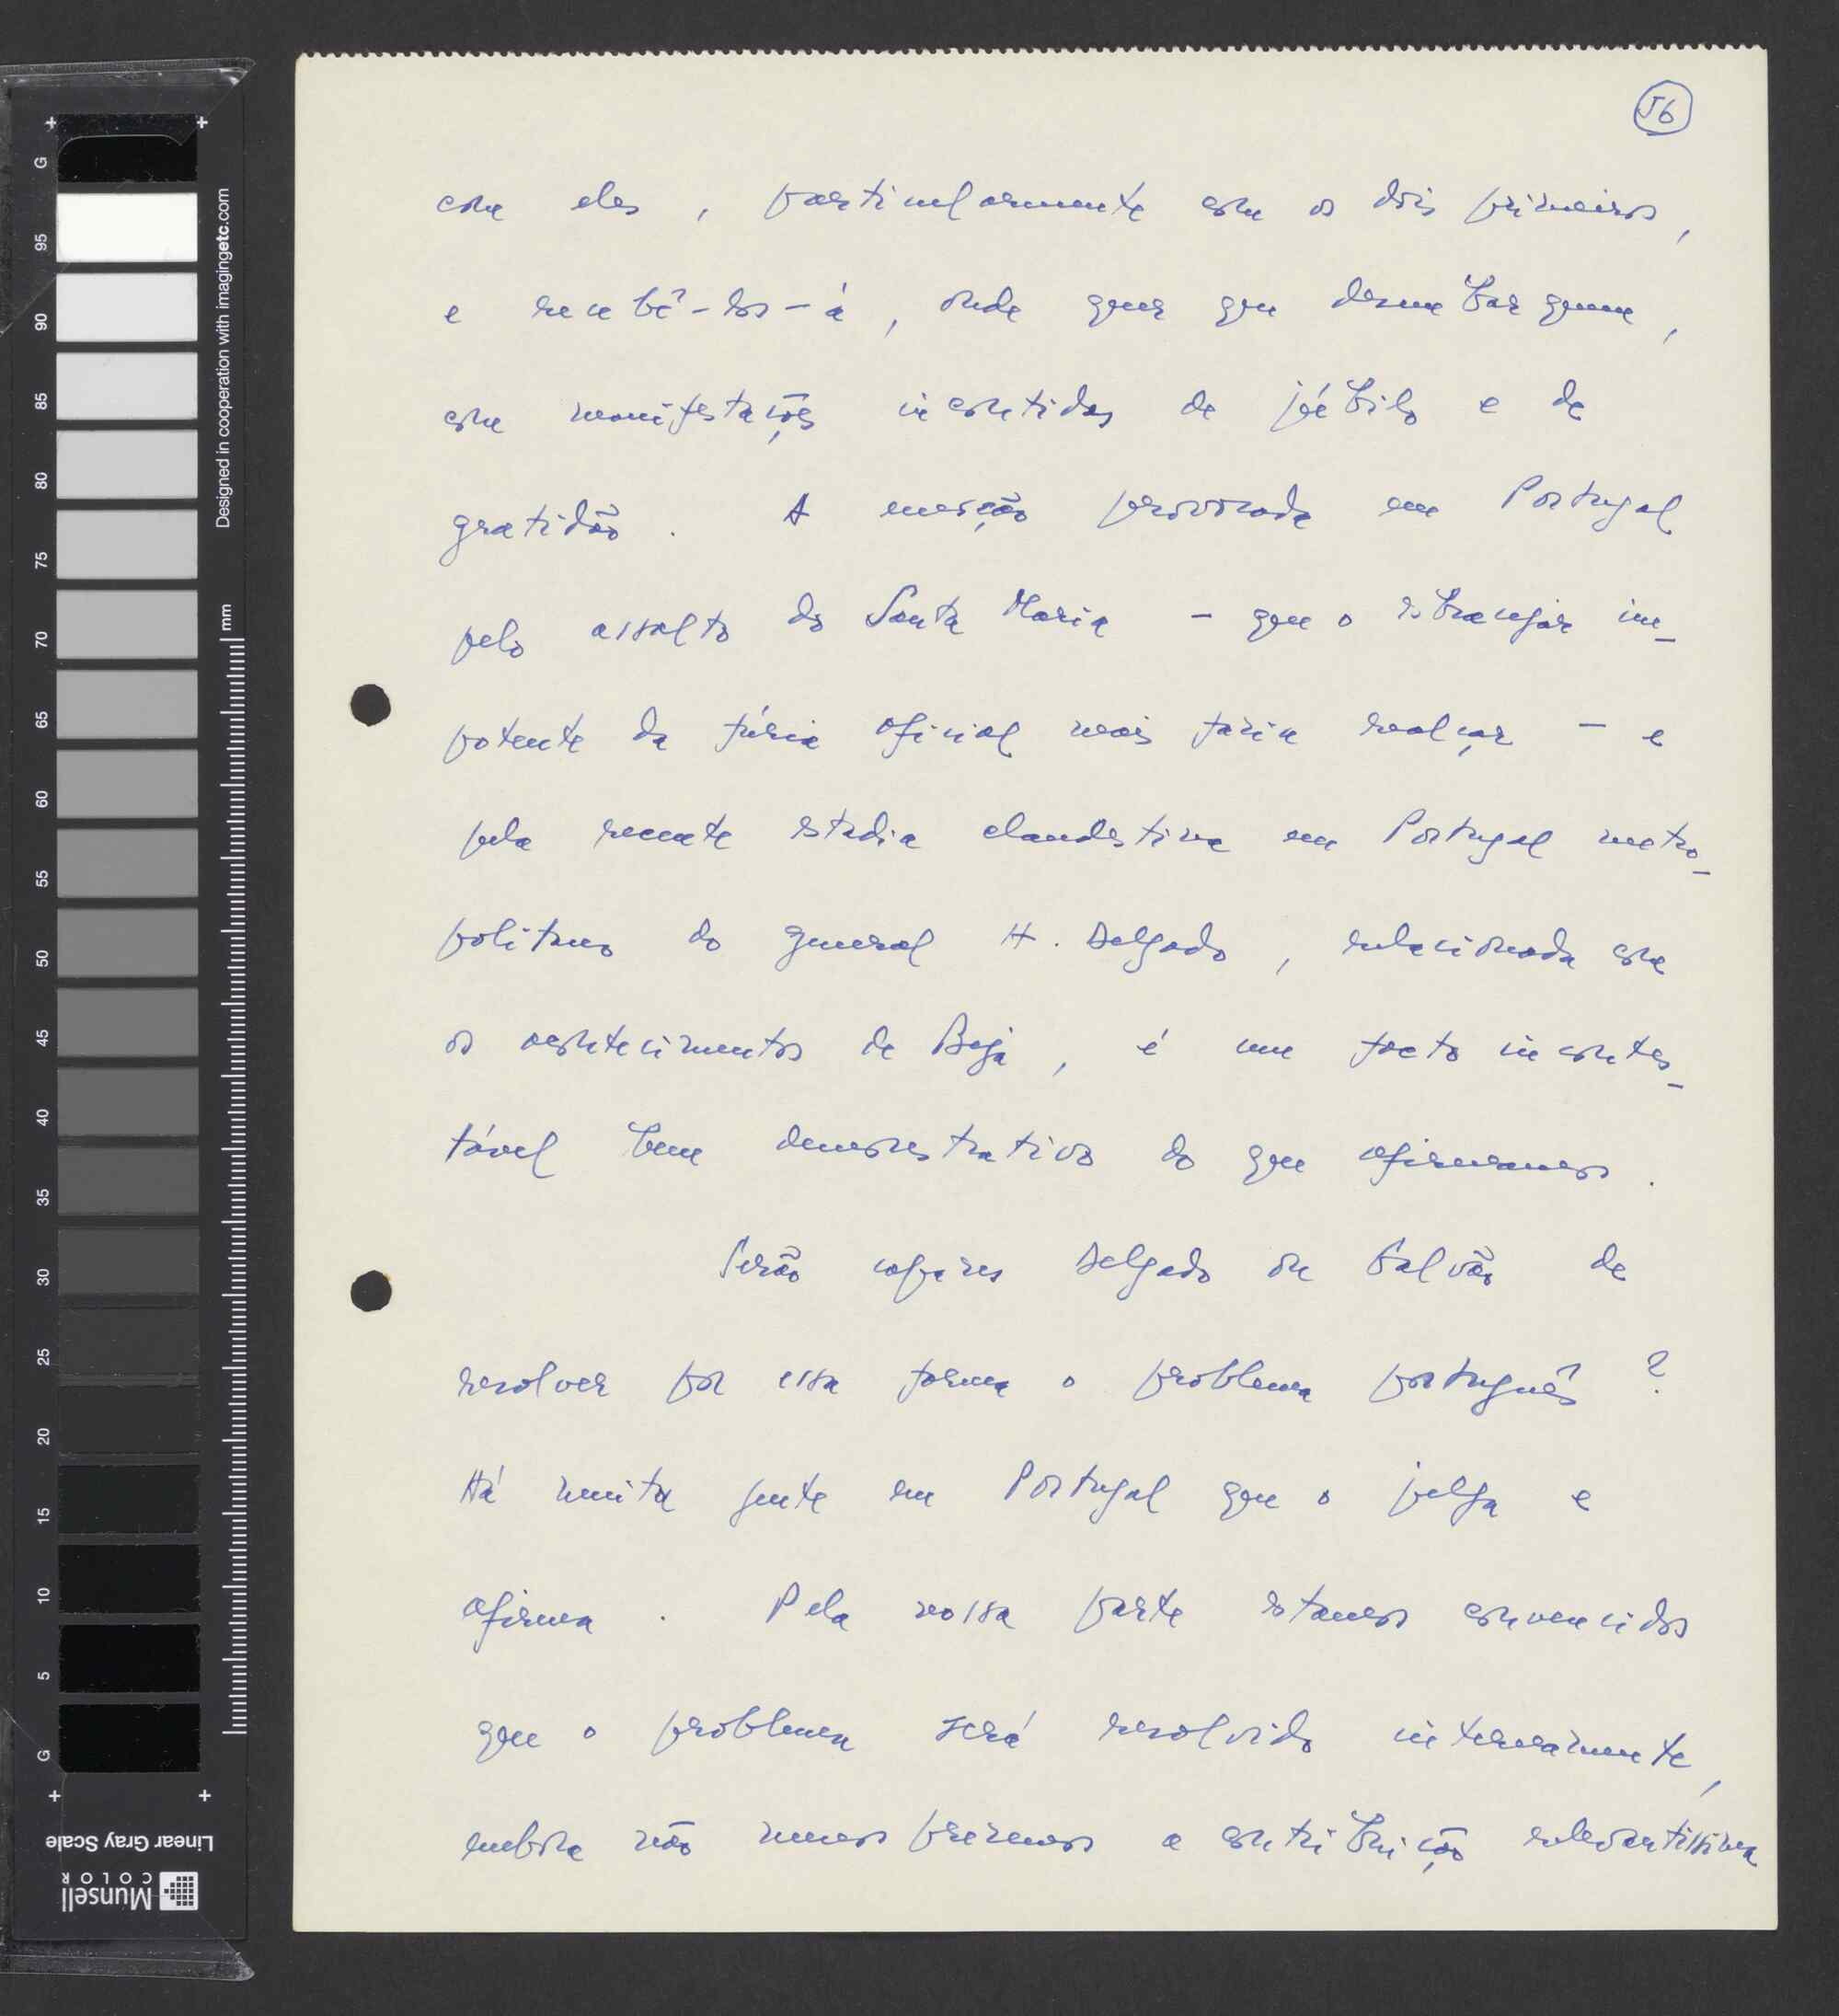 56
com eles, particularmente com os dois primeiros,
e recebê-los-á, onde quer que desembarquem,
com manifestações incontidas de júbilo e de
gratidão. A emoção provocada em Portugal
pelo assalto do Santa Maria - que o estrebuchar im-
potente da fúria oficial mais faria realçar - e
pela recente estadia clandestina em Portugal metro-
politano do general H. Delgado, relacionada com
os acontecimentos de Beja, é um facto incontes-
tável bem demonstrativo do que afirmamos.
Serão capazes Delgado ou Galvão de
resolver por essa forma o problema português?
Há muita gente em Portugal que o julga e
afirma. Pela nossa parte estamos convencidos
que o problema será resolvido internamente,
embora não menosprezemos a contribuição relevantíssima
G
95
90
85
80
75
70
65
60
55
50
45
40
35
30
25
20
15
10
5
G
mm
Designed in cooperation with imagingetc.com
Linear Gray Scale
Munsell
COLOR